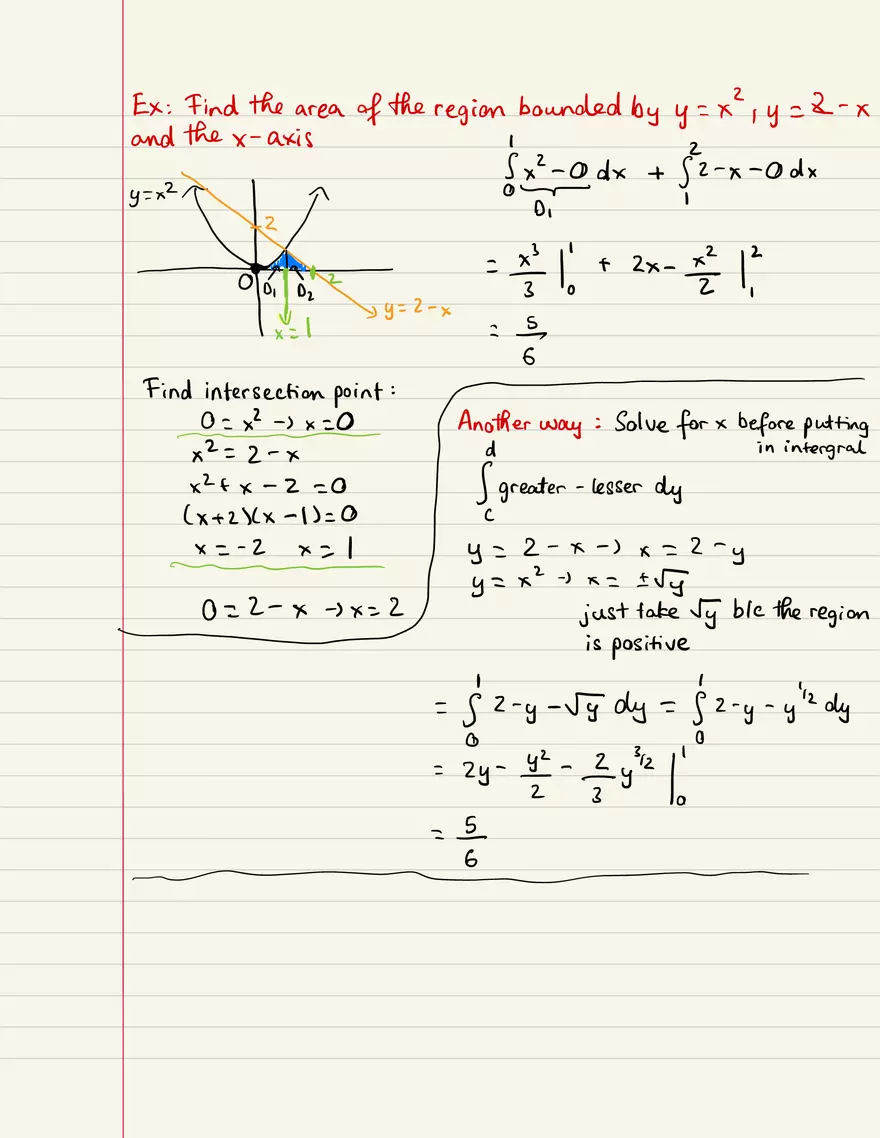 Ex: Find the area of the region bounded by y = x², y = 2 - x
and the x-axis
y = x²
2
O
D₁
D₂
2
y = 2 - x
x = 1
∫₀¹ x² - 0 dx + ∫₁² 2 - x - 0 dx
D₁
= x³/3 |₀¹ + 2x - x²/2 |₁²
= 5/6
Find intersection point:
0 = x² → x = 0
x² = 2 - x
x² + x - 2 = 0
(x+2)(x-1) = 0
x = -2 x = 1
0 = 2 - x → x = 2
Another way: Solve for x before putting
in intergral
∫_c^d greater - lesser dy
y = 2 - x → x = 2 - y
y = x² → x = ±√y
just take √y b/c the region
is positive
= ∫₀¹ 2 - y - √y dy = ∫₀¹ 2 - y - y^(1/2) dy
= 2y - y²/2 - 2/3 y^(3/2) |₀¹
= 5/6